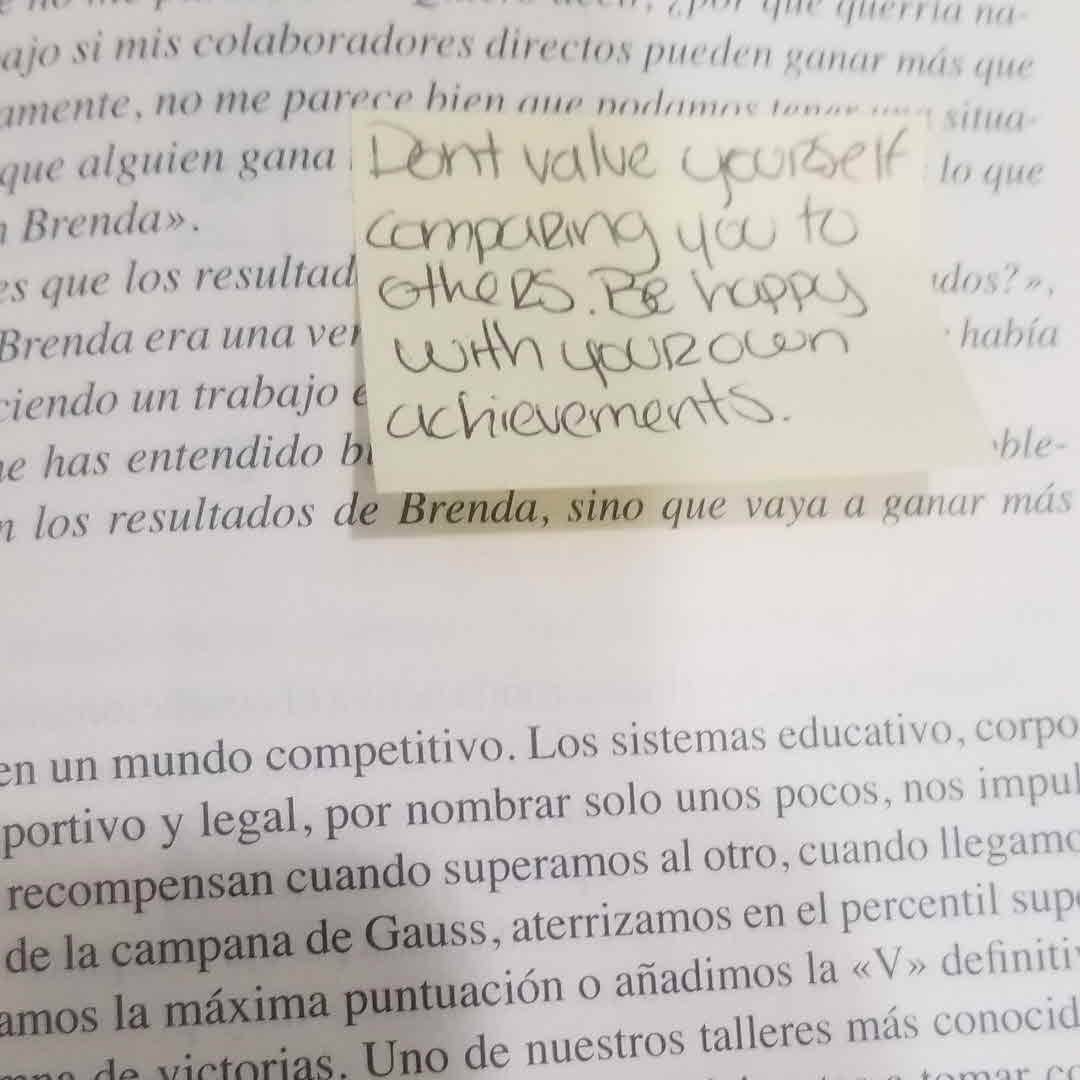 querría na-
ajo si mis colaboradores directos pueden ganar más que
amente, no me parece bien que podamos tener una situa-
que alguien gana lo que
Brenda».
es que los resultad dos?»,
Brenda era una ver había
ciendo un trabajo e
e has entendido bi ble-
n los resultados de Brenda, sino que vaya a ganar más
Dont value yourself
comparing you to
others. Be happy
with your own
achievements.
en un mundo competitivo. Los sistemas educativo, corpo
portivo y legal, por nombrar solo unos pocos, nos impul
recompensan cuando superamos al otro, cuando llegamo
de la campana de Gauss, aterrizamos en el percentil supe
amos la máxima puntuación o añadimos la «V» definitiv
de victorias. Uno de nuestros talleres más conocid
tomar